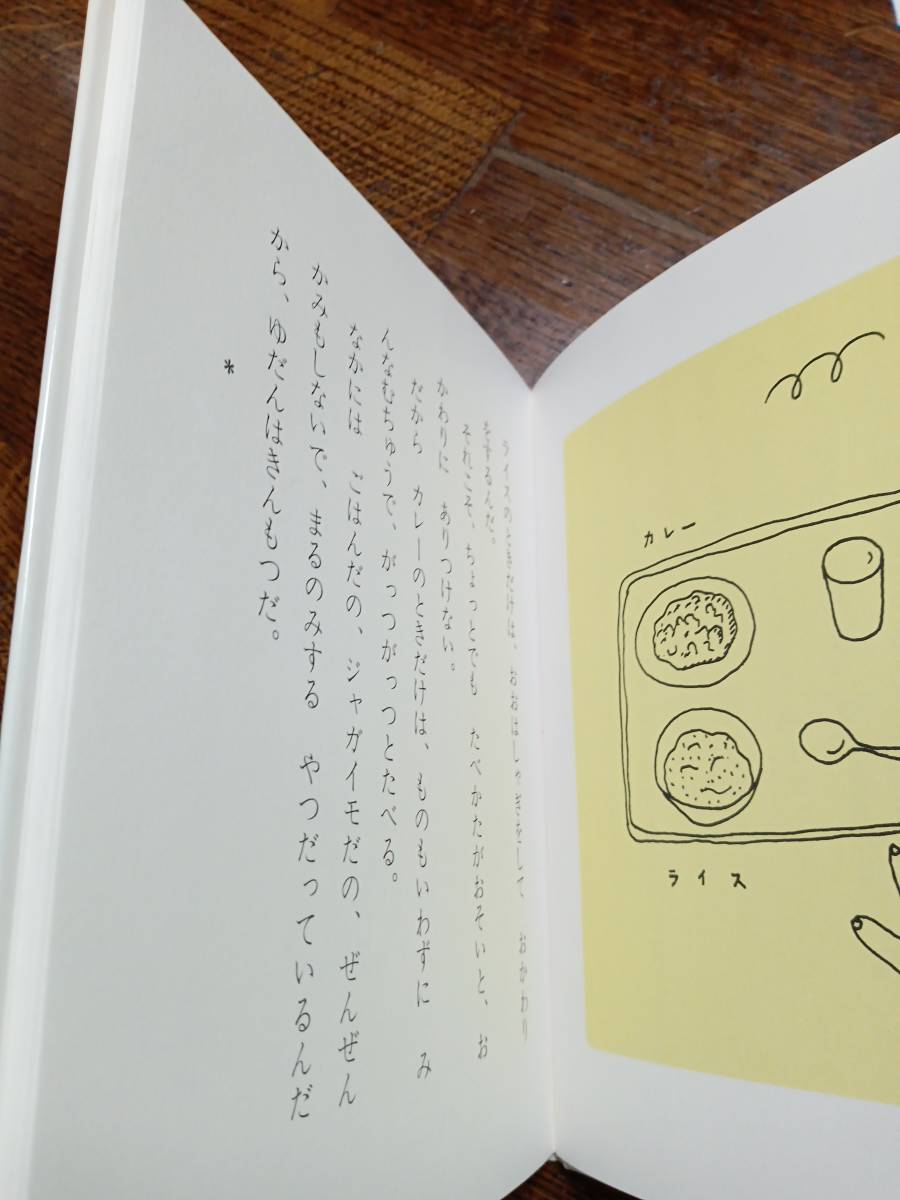 カレー
ライス
ライスのときだけは、おおはしゃぎをして　おかわり
をするんだ。
それこそ、ちょっとでも　たべかたがおそいと、お
かわりに　ありつけない。
だから　カレーのときだけは、ものもいわずに　み
んなむちゅうで、がっつがっつとたべる。
なかには　ごはんだの、ジャガイモだの、ぜんぜん
かみもしないで、まるのみする　やつだっているんだ
から、ゆだんはきんもつだ。
*